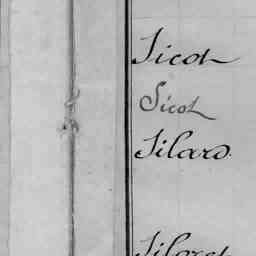 Sicot
Sicot
Silard.
Siloret